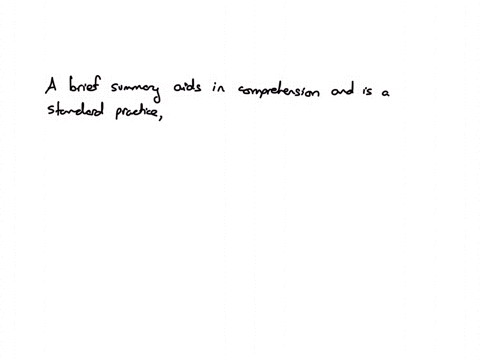 A brief summary aids in comprehension and is a
standard practice,